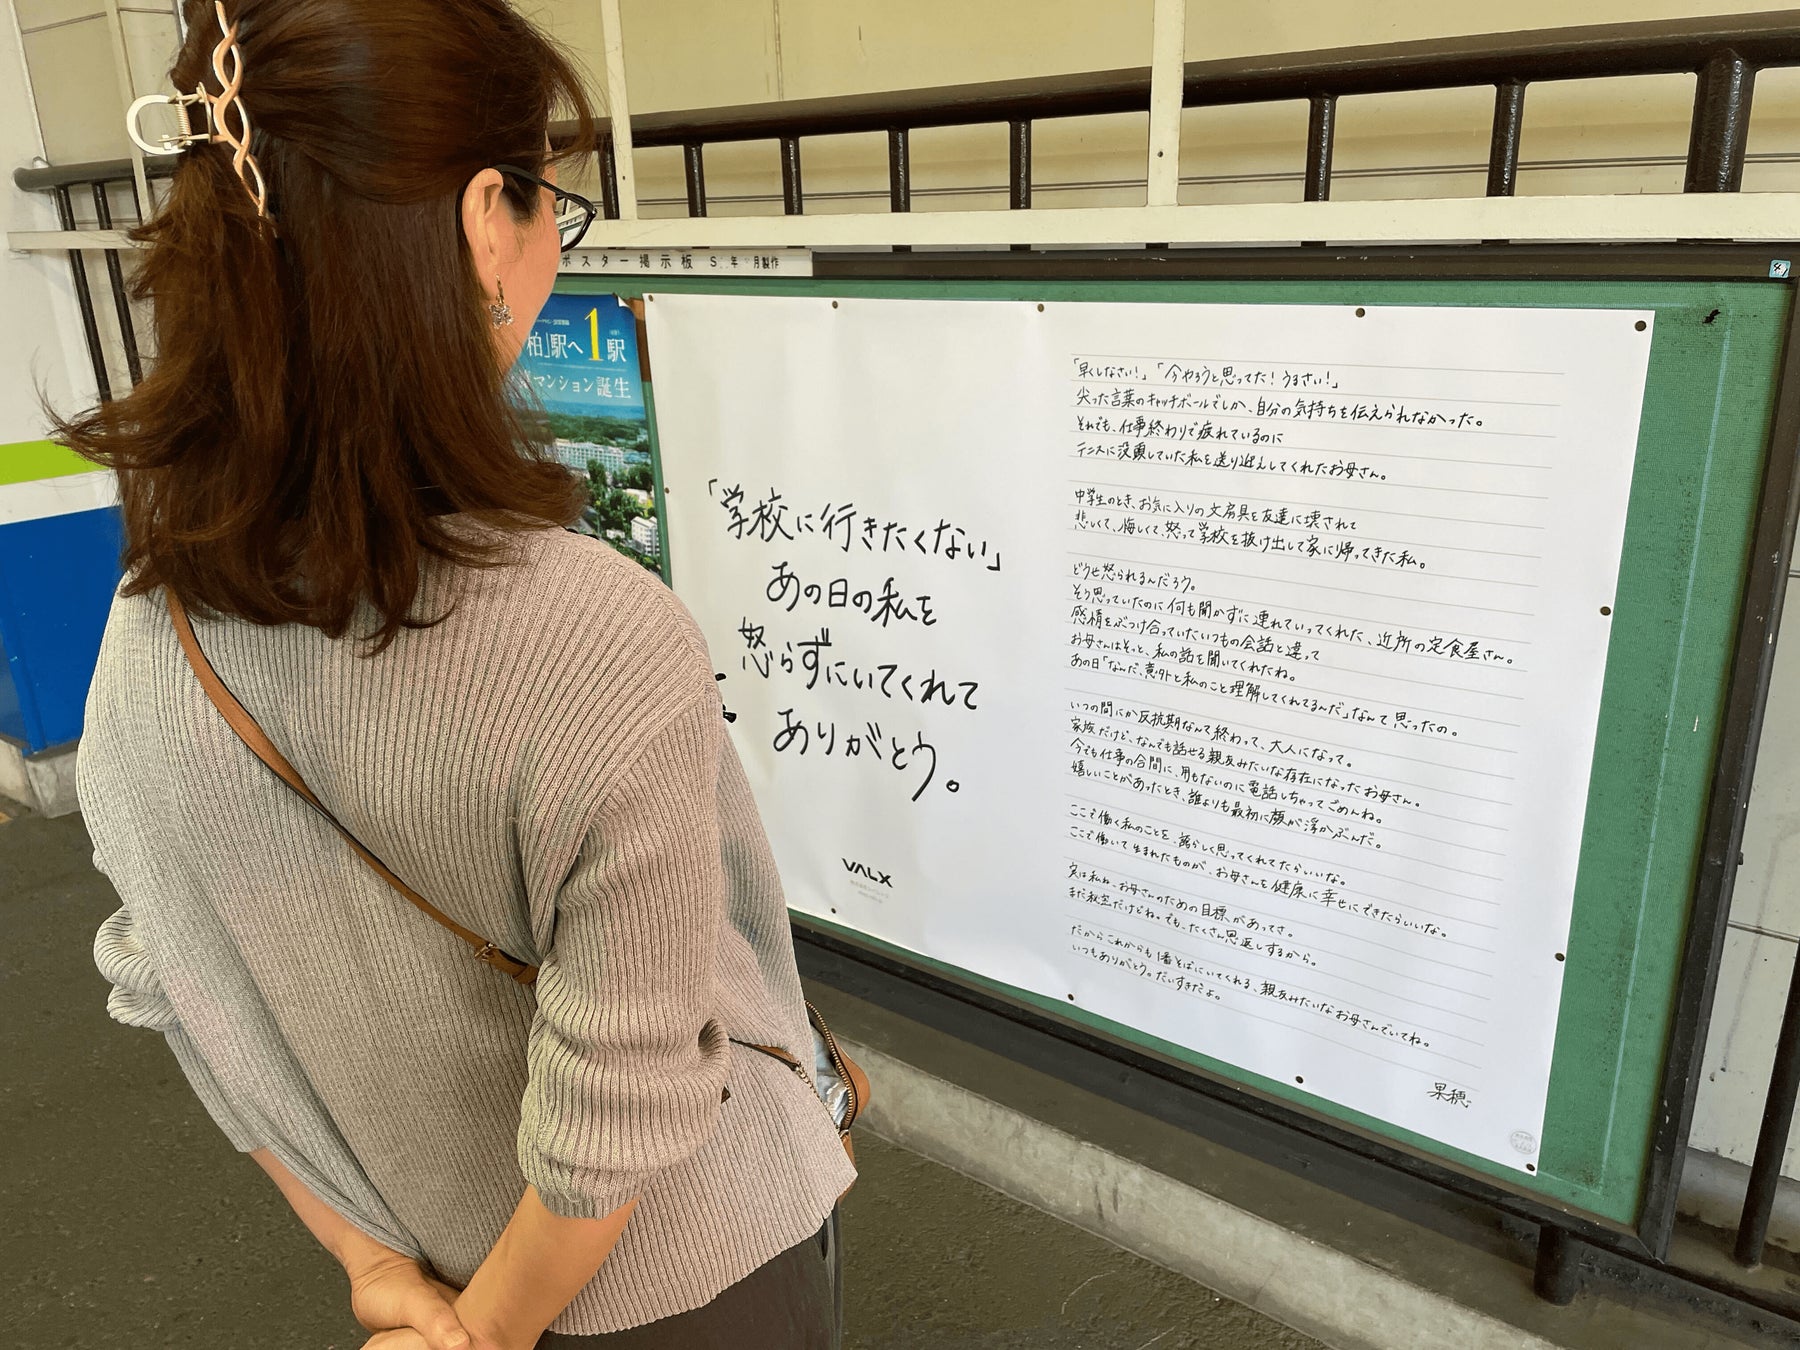 ポスター掲示板 S 年 月製作
柏」駅へ1駅
マンション誕生
「学校に行きたくない」
あの日の私を
怒らずにいてくれて
ありがとう。
VALX
「早くしなさい!」「今やろうと思ってた!うるさい!」
尖った言葉のキャッチボールでしか、自分の気持ちを伝えられなかった。
それでも、仕事終わりで疲れているのに
テニスに没頭していた私を送り迎えしてくれたお母さん。
中学生のとき、お気に入りの文房具を友達に壊されて
悲しくて、悔しくて、怒って学校を抜け出して家に帰ってきた私。
どうせ怒られるんだろう。
そう思っていたのに何も聞かずに連れていってくれた、近所の定食屋さん。
感情をぶつけ合っていたいつもの会話と違って
お母さんはそっと、私の話を聞いてくれたね。
あの日「なんだ、意外と私のこと理解してくれてるんだ」なんて思ったの。
いつの間にか反抗期なんて終わって、大人になって。
家族だけど、なんでも話せる親友みたいな存在になったお母さん。
今でも仕事の合間に、用もないのに電話しちゃってごめんね。
嬉しいことがあったとき、誰よりも最初に顔が浮かぶんだ。
ここで働く私のことを、誇らしく思ってくれてたらいいな。
ここで働いて生まれたものが、お母さんを健康に幸せにできたらいいな。
実は私ね、お母さんのための目標があってさ。
まだ秘密だけどね。でも、たくさん恩返しするから。
だからこれからも1番そばにいてくれる、親友みたいなお母さんでいてね。
いつもありがとう。だいすきだよ。
果穂